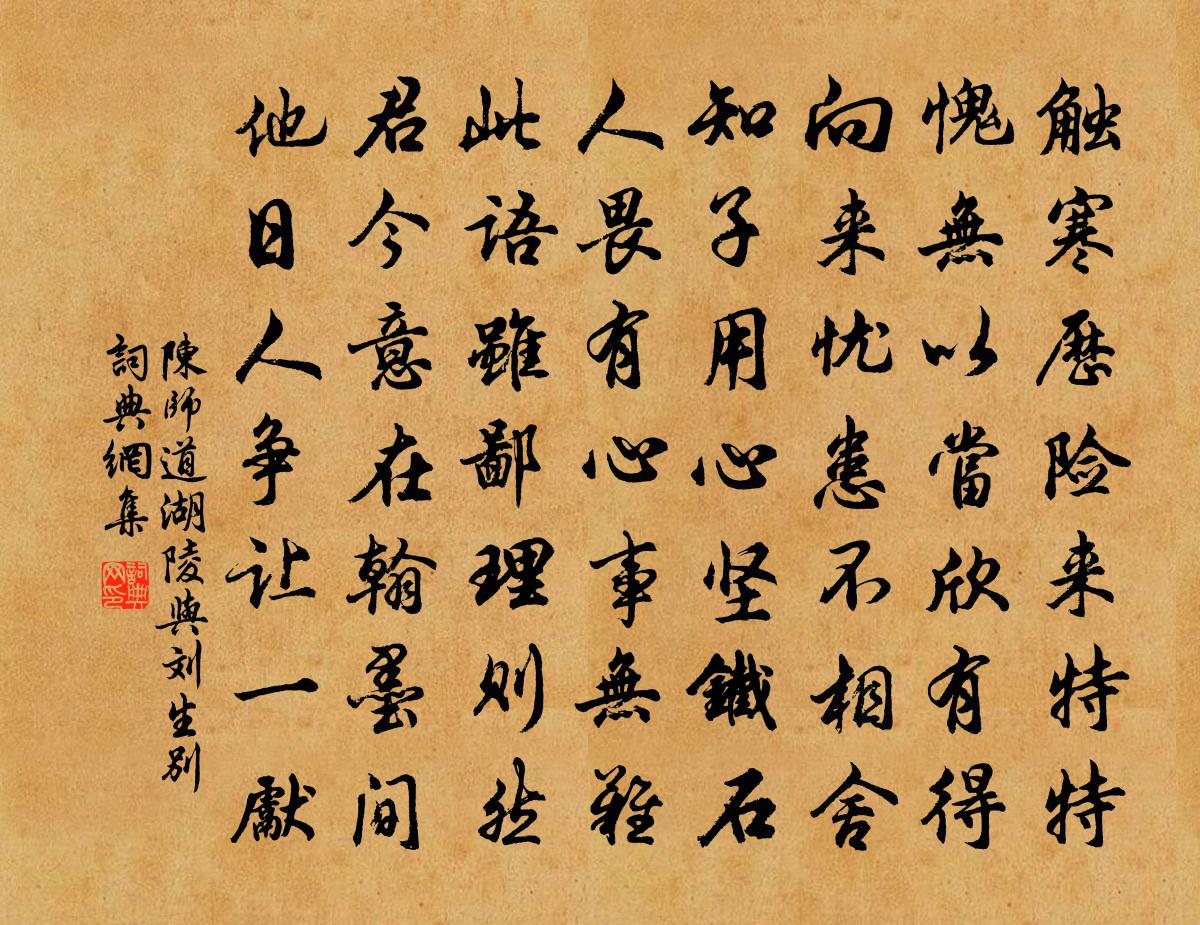 触寒历险来特特
愧無以當欣有得
向来忧患不相舍
知子用心坚鐵石
人畏有心事無難
此语雖鄙理则然
君今意在翰墨间
他日人争让一獻
陳師道湖陵與刘生别
詞典網集
詞典网印